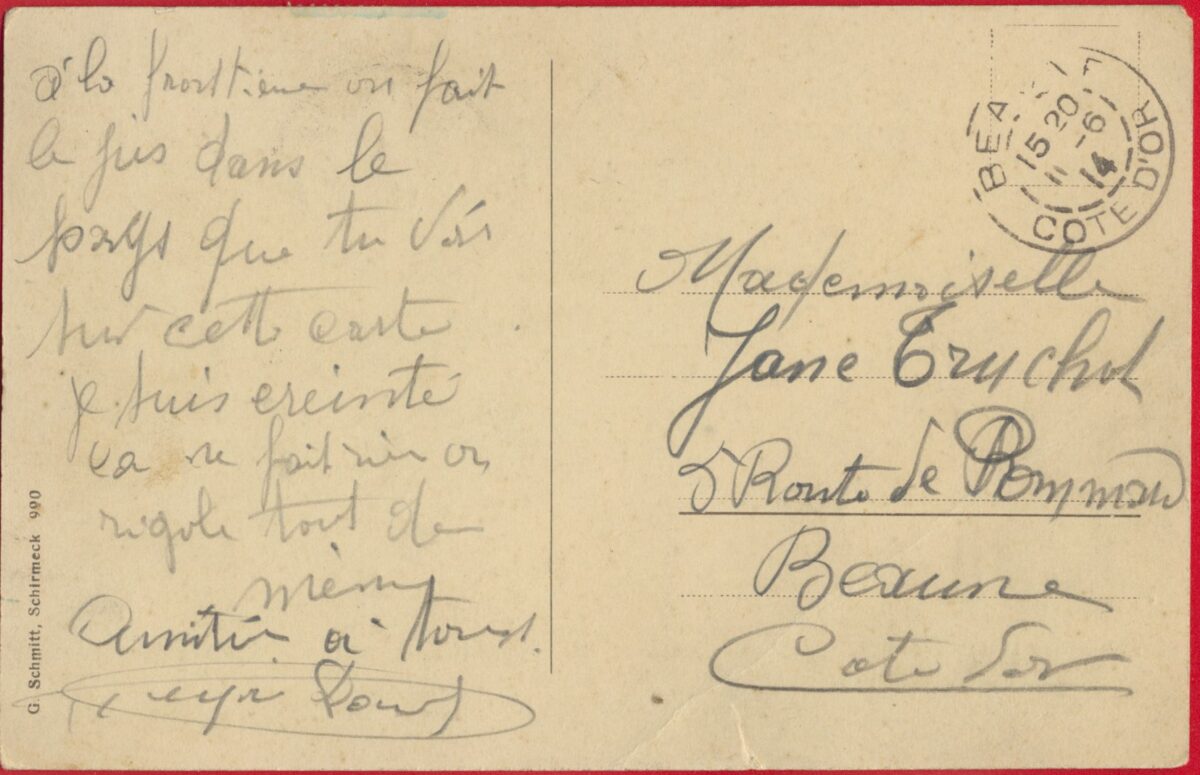 à la fronttière on fait
le jus dans le
pays que tu vois
sur cette carte.
je suis ereinté
ca ne fait rien on
rigole tout de
même
Amitié à tous.
G. Schmitt, Schirmeck 990
BEAUNE
15 20
11 -6
14
COTE D'OR
Mademoiselle
Jane Truchot
5 Route de Pommard
Beaune
Cote d'or